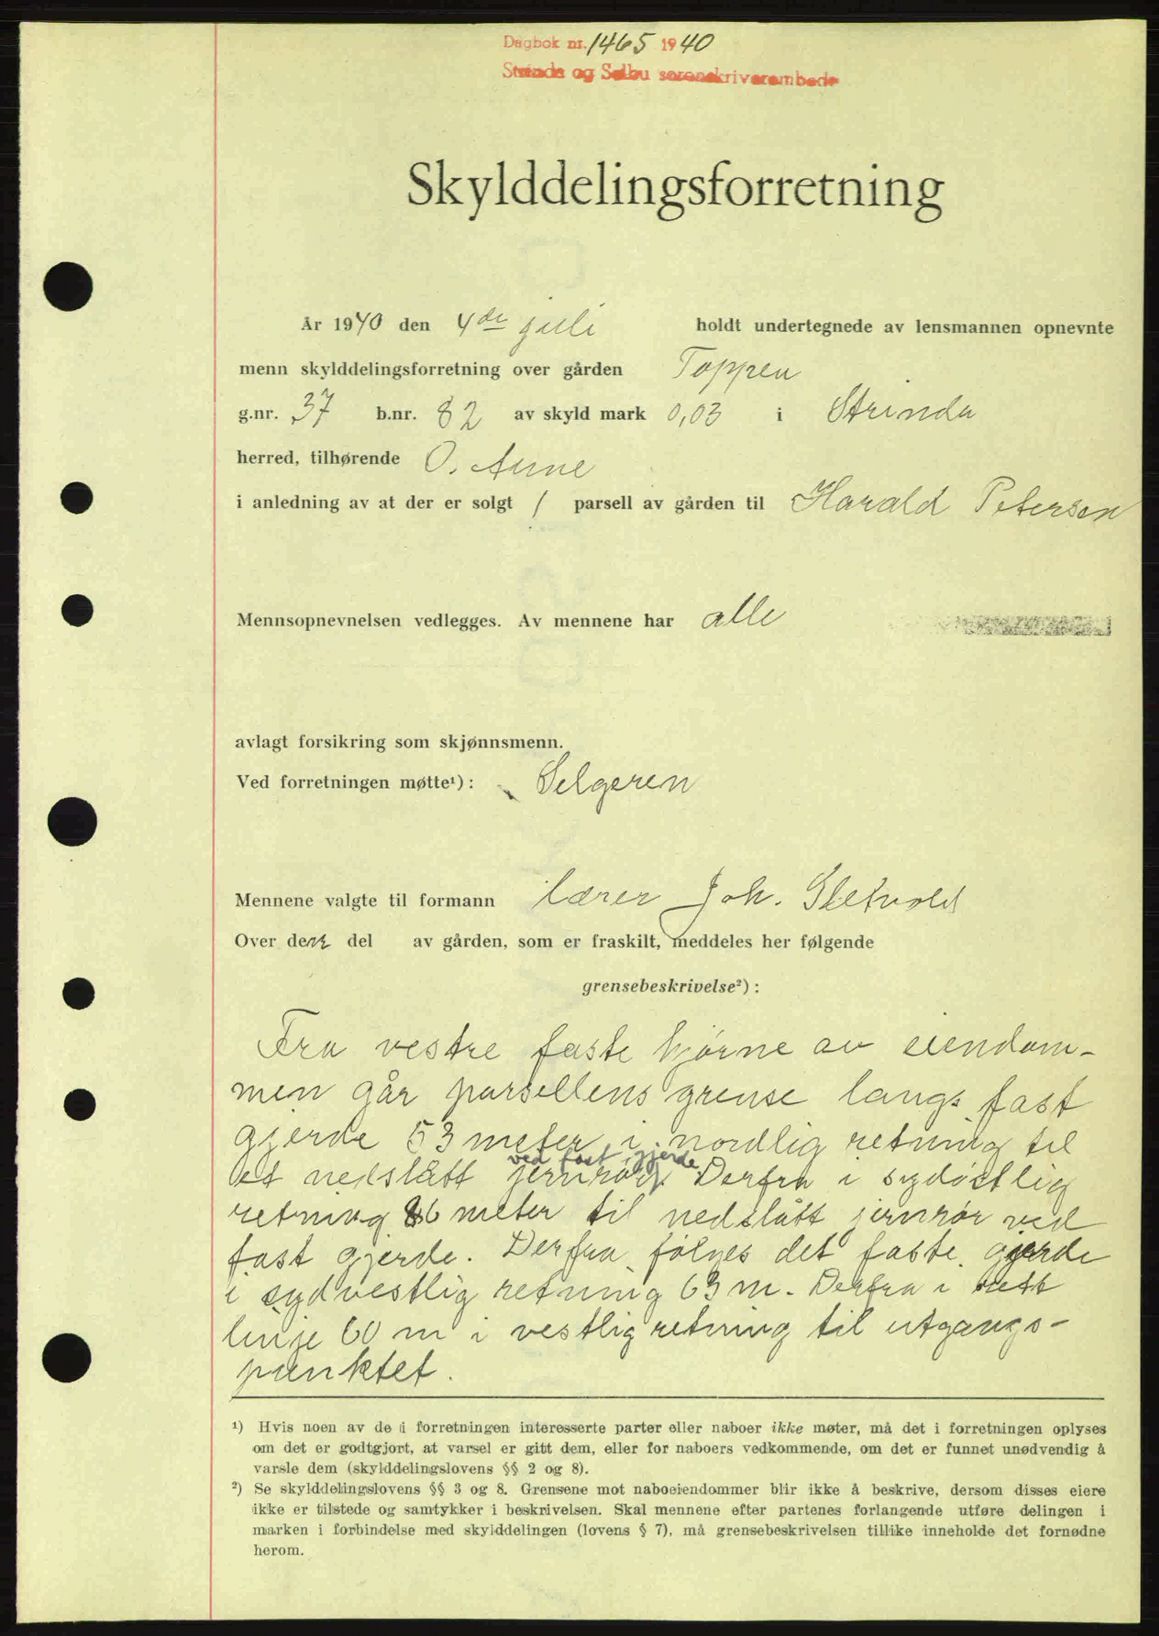 Dagbok nr. 1465 1940
Strinda og Selbu sorenskriverembede
Skylddelingsforretning
År 1940 den 4de juli holdt undertegnede av lensmannen opnevnte
menn skylddelingsforretning over gården Toppen
g.nr. 37 b.nr. 82 av skyld mark 0,03 i Strinda
herred, tilhørende O. Aune
i anledning av at der er solgt 1 parsell av gården til Harald Petersen
Mennsopnevnelsen vedlegges. Av mennene har alle
avlagt forsikring som skjønnsmenn.
Ved forretningen møtte¹): Selgeren
Mennene valgte til formann lærer Joh. Sletvold
Over den del av gården, som er fraskilt, meddeles her følgende
grensebeskrivelse²):
Fra vestre faste hjørne av eiendom-
men går parsellens grense langs fast
gjerde 53 meter i nordlig retning til
et nedslått jernrør ved fast gjerde. Derfra i sydøstlig
retning 86 meter til nedslått jernrør ved
fast gjerde. Derfra følges det faste gjerde
i sydvestlig retning 63 m. Derfra i rett
linje 60 m i vestlig retning til utgangs-
punktet.
¹) Hvis noen av de i forretningen interesserte parter eller naboer ikke møter, må det i forretningen oplyses
om det er godtgjort, at varsel er gitt dem, eller for naboers vedkommende, om det er funnet unødvendig å
varsle dem (skylddelingslovens §§ 2 og 8).
²) Se skylddelingslovens §§ 3 og 8. Grensene mot naboeiendommer blir ikke å beskrive, dersom disses eiere
ikke er tilstede og samtykker i beskrivelsen. Skal mennene efter partenes forlangende utføre delingen i
marken i forbindelse med skylddelingen (lovens § 7), må grensebeskrivelsen tillike inneholde det fornødne
herom.